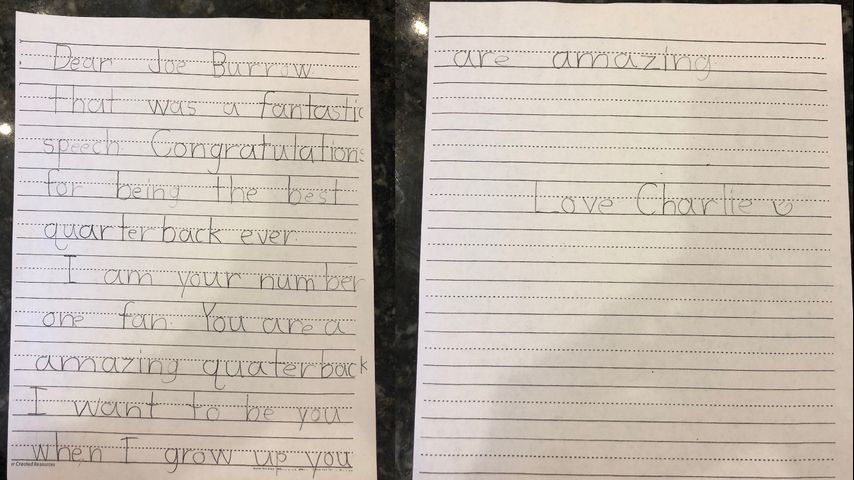 Dear Joe Burrow.
that was a fantastic
speech. Congratulations
for being the best
quarterback ever.
I am your number
one fan. You are a
amazing quaterback
I want to be you
when I grow up you
er Created Resources
are amazing.
Love Charlie